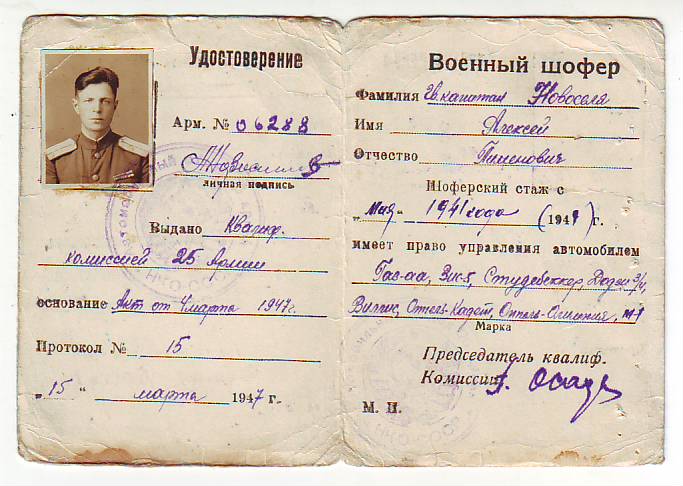 Удостоверение
Арм. № 06288
личная подпись
Выдано Квалиф.
комиссией 25 Армии
основание Акт от 4 марта 1947г.
Протокол № 15
„15“ марта 1947 г.
Военный шофер
Фамилия Гв. капитан Новоселя
Имя Алексей
Отчество Пименович
Шоферский стаж с
„Мая“ 1941 года (1941) г.
имеет право управления автомобилем
Газ-аа, Зис-5, Студебеккер, Додж 3/4,
Виллис, Опель-Кадет, Оппель-Олимпия, М-1
Марка
Председатель квалиф.
Комиссии
М. П.
НКО СССР
НКО-СССР